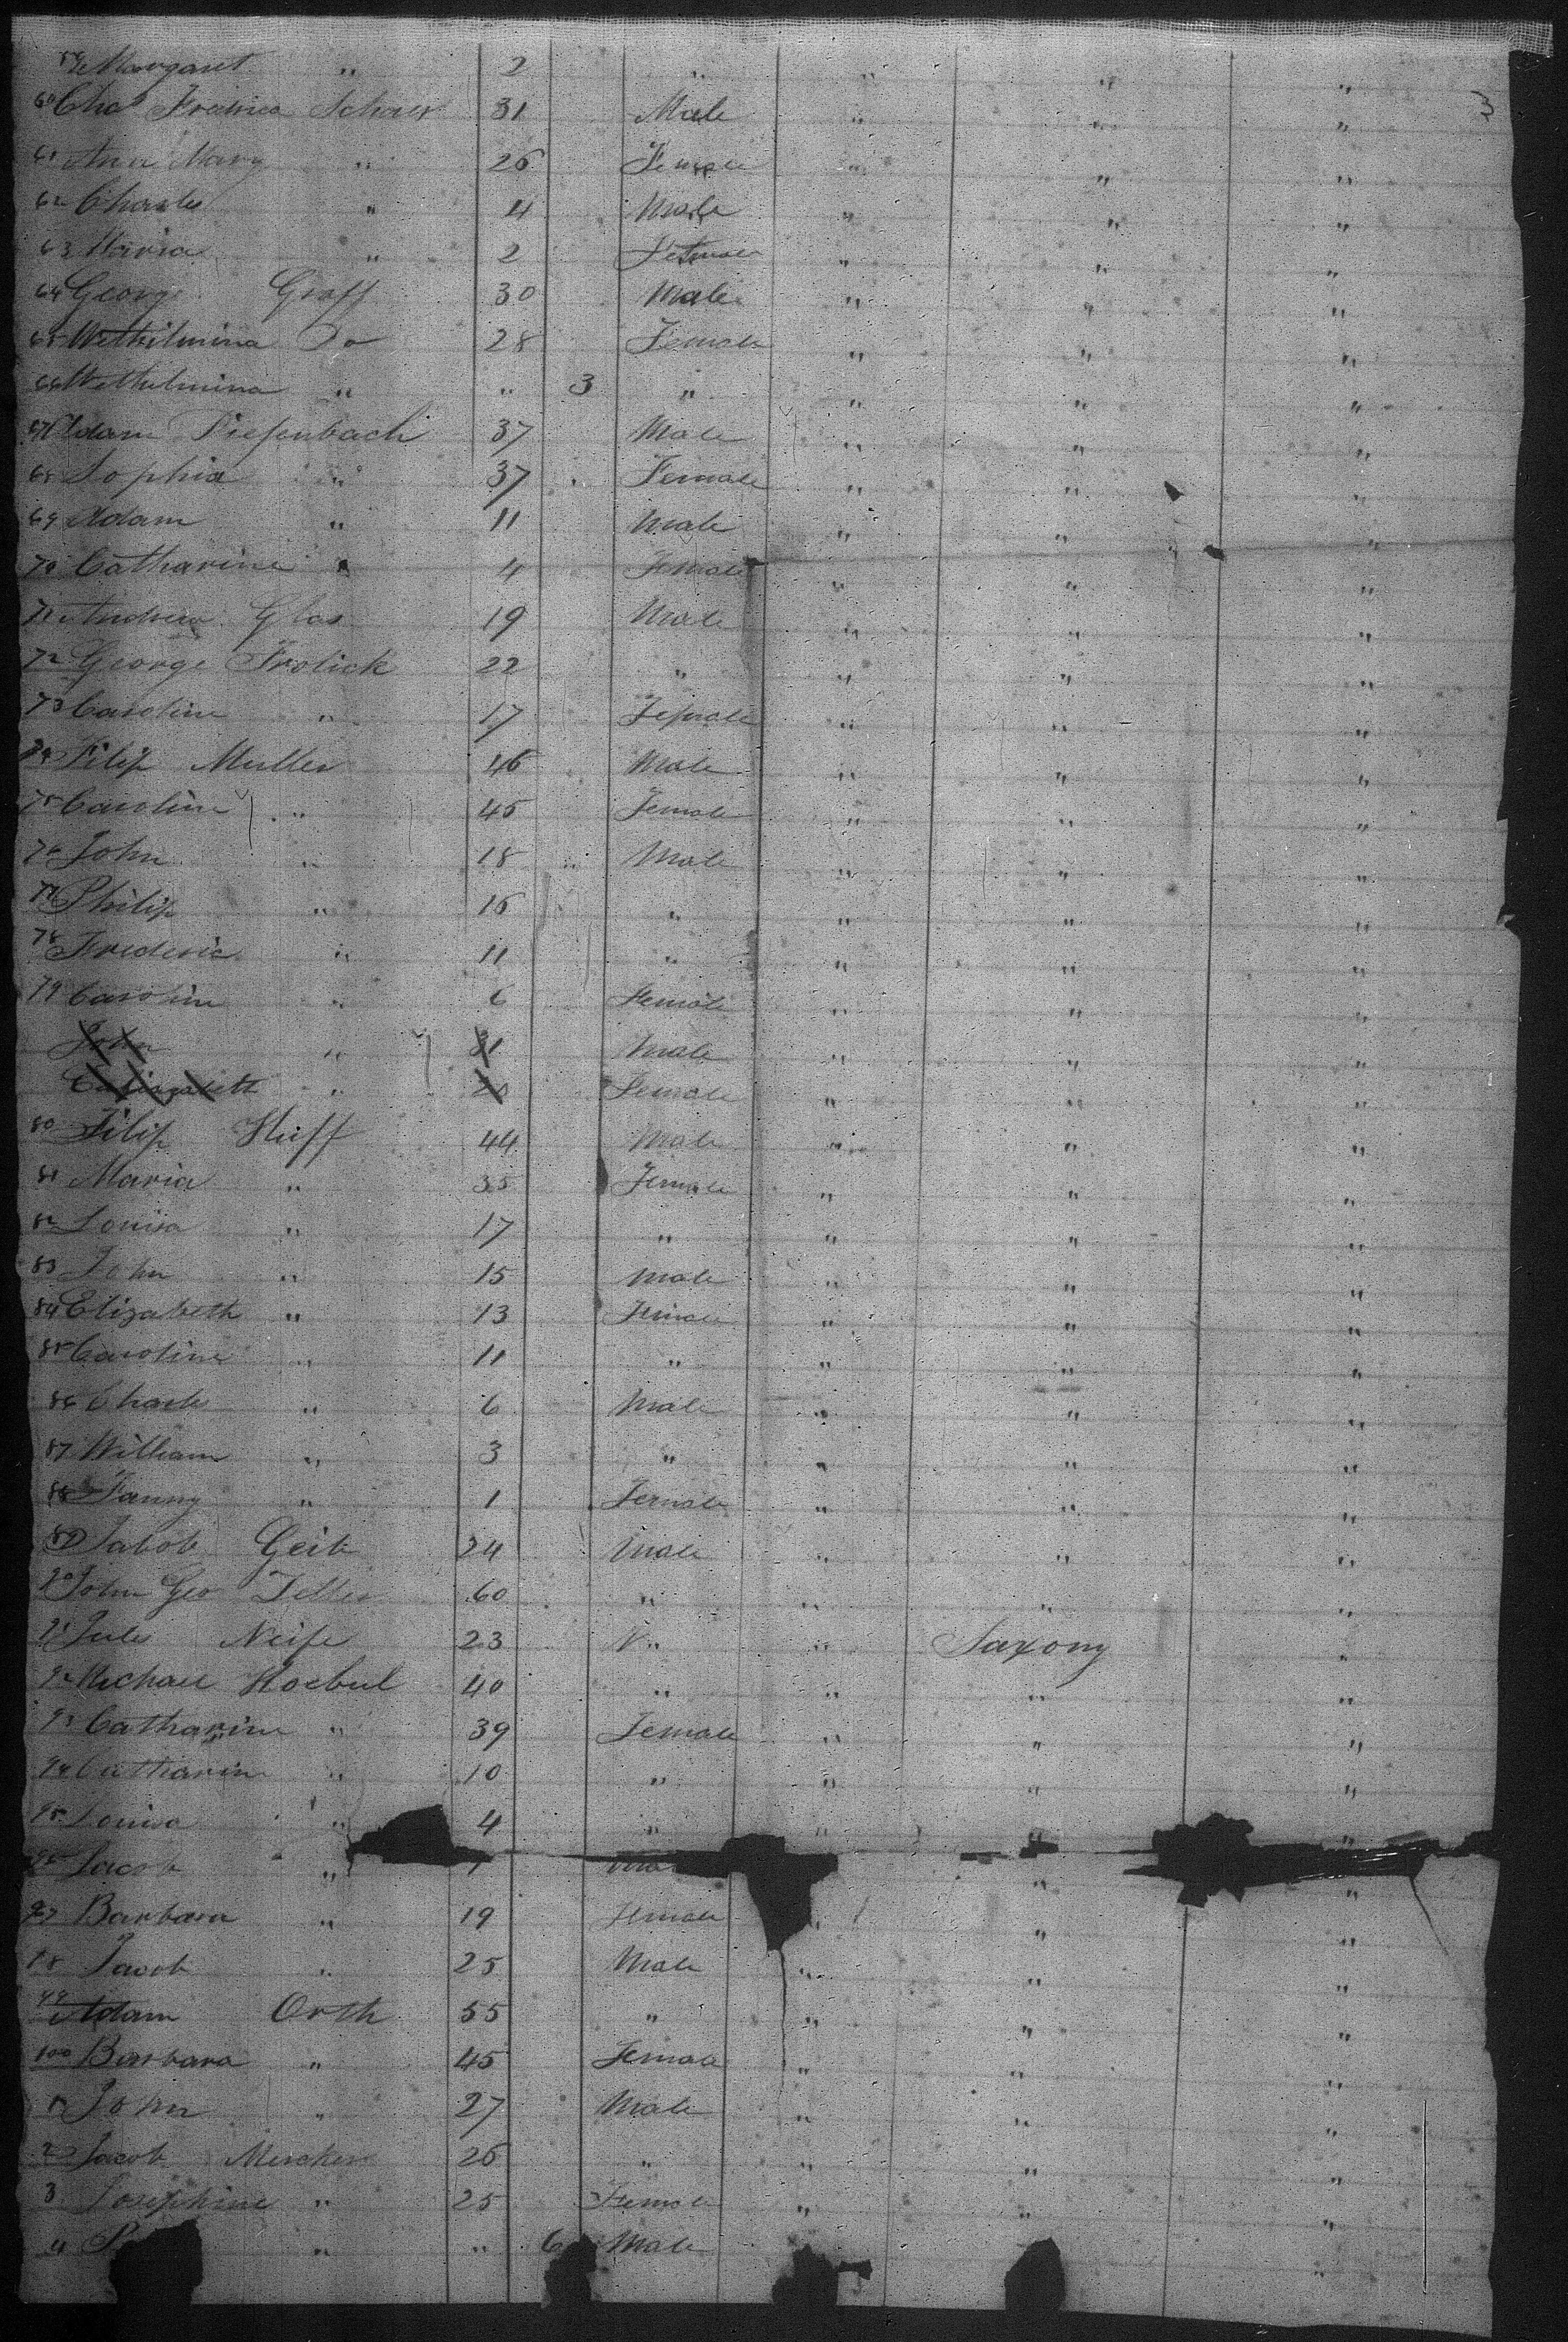 59 Margaret " 2 " " " "
3
60 Chas Schaer 31 Male " " "
61 Ana Mary " 26 Female " " "
62 Charles " 4 Male " " "
63 Maria " 2 Female " " "
64 George Graff 30 Male " " "
65 Wethilmina Do 28 Female " " "
66 Wethilmina " " 3 " " " "
67 Adam Piefenbach 37 Male " " "
68 Sophia " 37 Female " " "
69 Adam " 11 Male " " "
70 Catharine " 4 Female " " "
71 Andrew Glas 19 Male " " "
72 George Frolick 22 " " " "
73 Caroline " 17 Female " " "
74 Filip Muller 46 Male " " "
75 Caroline " 45 Female " " "
76 John " 18 Male " " "
77 Philip " 16 " " " "
78 Frederic " 11 " " " "
79 Caroline " 6 Female " " "
John " 31 Male " " "
" Female " " "
80 Filip Huff 44 Male " " "
81 Maria " 35 Female " " "
82 Louisa " 17 " " " "
83 John " 15 Male " " "
84 Elizabeth " 13 Female " " "
85 Caroline " 11 " " " "
86 Charls " 6 Male " " "
87 William " 3 " " " "
88 Fanny " 1 Female " " "
89 Jakob Geib 24 Male " " "
90 John Geo Teller 60 " " " "
91 Jules Neife 23 " " Saxony "
92 Michael Hoebul 40 " " " "
93 Catharine " 39 Female " " "
94 Catharine " 10 " " " "
95 Louisa " 4 " " " "
96 Jacob " 1 " "
97 Barbara " 19 Female " " "
98 Jacob " 25 Male " " "
99 Adam Orth 55 " " " "
100 Barbara " 45 Female " " "
1 John " 27 Male " " "
2 Jacob Mercker 26 " " " "
3 Josephine " 25 Female " " "
4 " " 6 Male